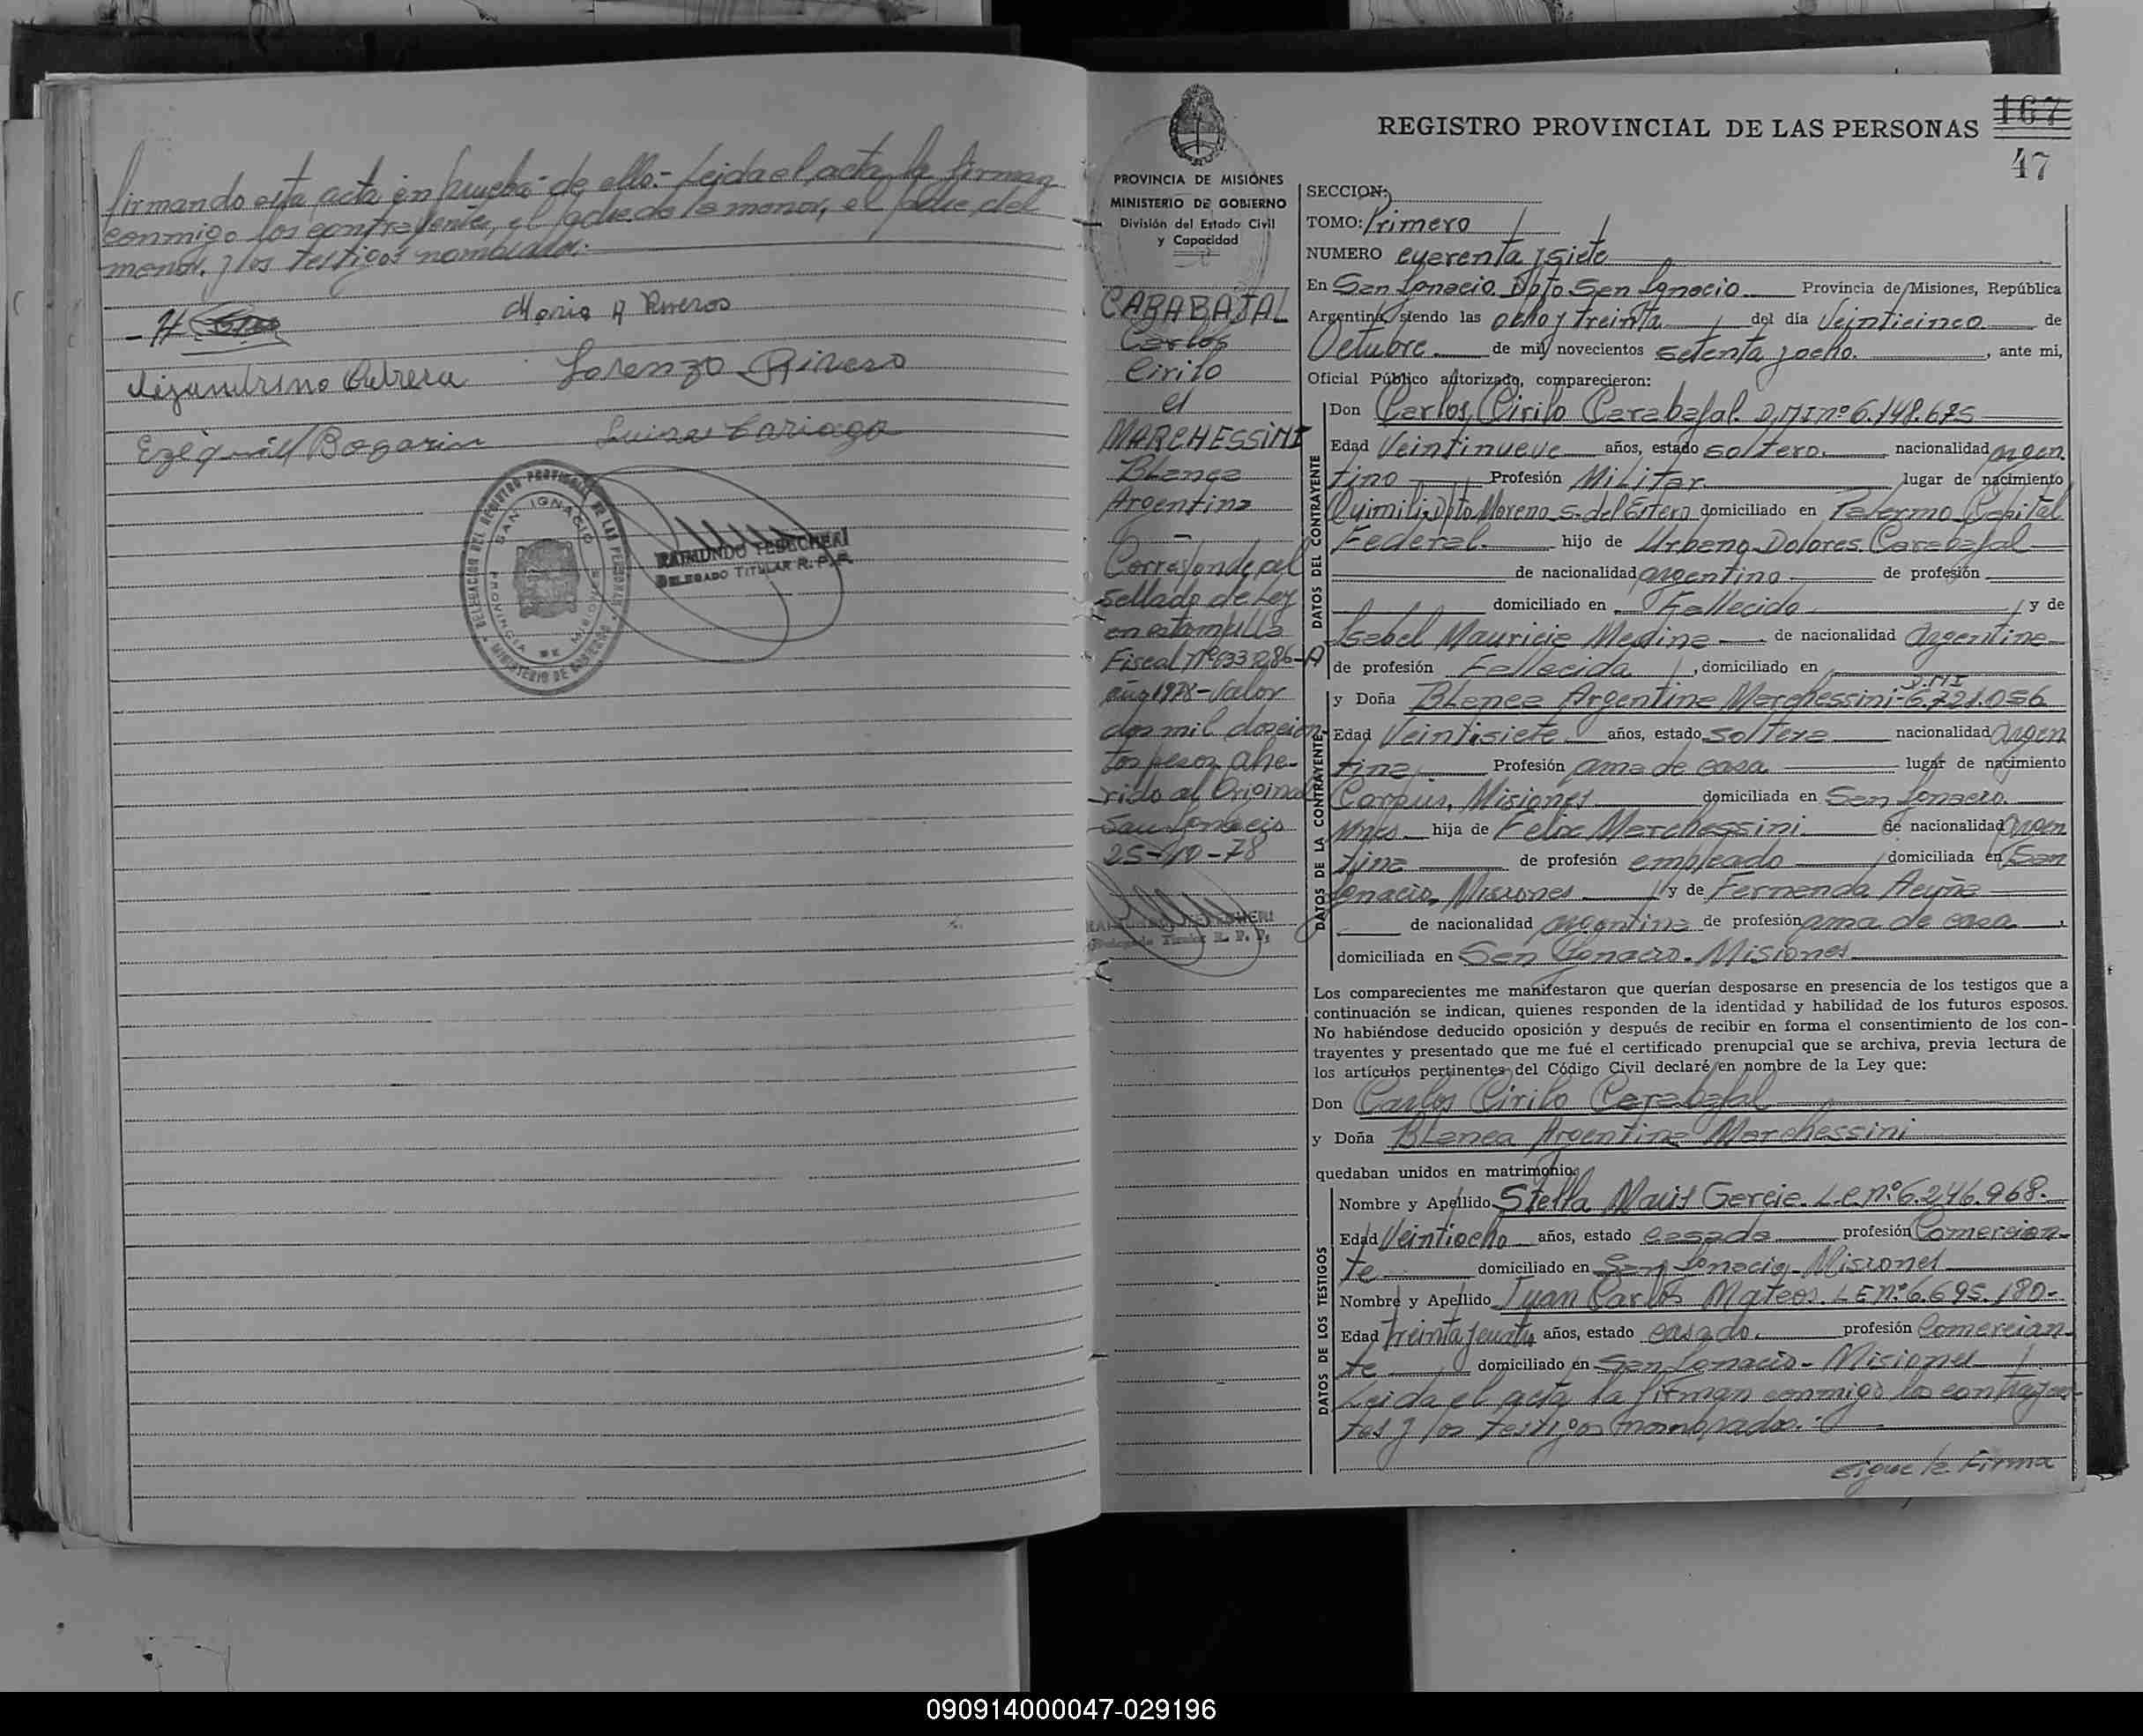 firmando esta acta en prueba de ello.- Leida el acta la firman
conmigo los contrayentes, el padre de la menor, el padre del
menor, y los testigos nombrados.-
Maria A Riveros
Alejandrino Cabrera Lorenzo Rivero
Ezequiel Bogarin Luisa Cariaga
DELEGACION DEL REGISTRO PROVINCIAL DE LAS PERSONAS
SAN IGNACIO
PROVINCIA DE MISIONES
MINISTERIO DE GOBIERNO
RAIMUNDO TEBECHERI
DELEGADO TITULAR R. P. P.
PROVINCIA DE MISIONES
MINISTERIO DE GOBIERNO
División del Estado Civil
y Capacidad
CARABAJAL
Carlos
Cirilo
MARCHESSINI
Blanca
Argentina
-
Corresponde al
Sellado de Ley
en estampilla
Fiscal Nº 033286-A
año 1978-Valor
dos mil doscien
tos pesos adhe-
rido al Original
San Ignacio
25-10-78
RAIMUNDO TEBECHERI
Delegado Titular R. P. P.
REGISTRO PROVINCIAL DE LAS PERSONAS 167
47
SECCION:
TOMO: Primero
NUMERO cuarenta y siete
En San Ignacio Dpto San Ignacio Provincia de Misiones, República
Argentina, siendo las ocho y treinta del día Veinticinco de
Octubre de mil novecientos setenta y ocho. , ante mi,
Oficial Público autorizado, comparecieron:
DATOS DEL CONTRAYENTE
Don Carlos Cirilo Carabajal D.M.I nº 6.148.675
Edad Veintinueve años, estado soltero. nacionalidad argen
tino Profesión Militar lugar de nacimiento
Quimili-Dpto Moreno S. del Estero domiciliado en Palermo Capital
Federal. hijo de Urbano Dolores Carabajal
de nacionalidad argentino de profesión
domiciliado en Fallecido y de
Isabel Mauricia Medina de nacionalidad Argentina
de profesión Fallecida , domiciliado en
DATOS DE LA CONTRAYENTE
y Doña Blanca Argentina Marchessini - D.M.I 6.721.056
Edad Veintisiete años, estado soltera nacionalidad argen
tina Profesión ama de casa lugar de nacimiento
Corpus, Misiones domiciliada en San Ignacio.
Mnes. hija de Felix Marchessini de nacionalidad argen
tina de profesión empleado domiciliada en San
Ignacio, Misiones y de Fernanda Acuña
de nacionalidad argentina de profesión ama de casa ,
domiciliada en San Ignacio. Misiones
Los comparecientes me manifestaron que querían desposarse en presencia de los testigos que a
continuación se indican, quienes responden de la identidad y habilidad de los futuros esposos.
No habiéndose deducido oposición y después de recibir en forma el consentimiento de los con-
trayentes y presentado que me fué el certificado prenupcial que se archiva, previa lectura de
los artículos pertinentes del Código Civil declaré en nombre de la Ley que:
Don Carlos Cirilo Carabajal
y Doña Blanca Argentina Marchessini
quedaban unidos en matrimonio.
DATOS DE LOS TESTIGOS
Nombre y Apellido Stella Maris Garcia. L.C. nº 6.246.968.
Edad Veintiocho años, estado casada profesión Comercian-
te domiciliado en San Ignacio-Misiones
Nombre y Apellido Juan Carlos Mateos. L E nº 6.695.180-
Edad treinta y cuatro años, estado casado. profesión Comercian-
te domiciliado en San Ignacio - Misiones
Leida el acta la firman conmigo los contrayen
tes y los testigos nombrados.-
sigue la firma
090914000047-029196